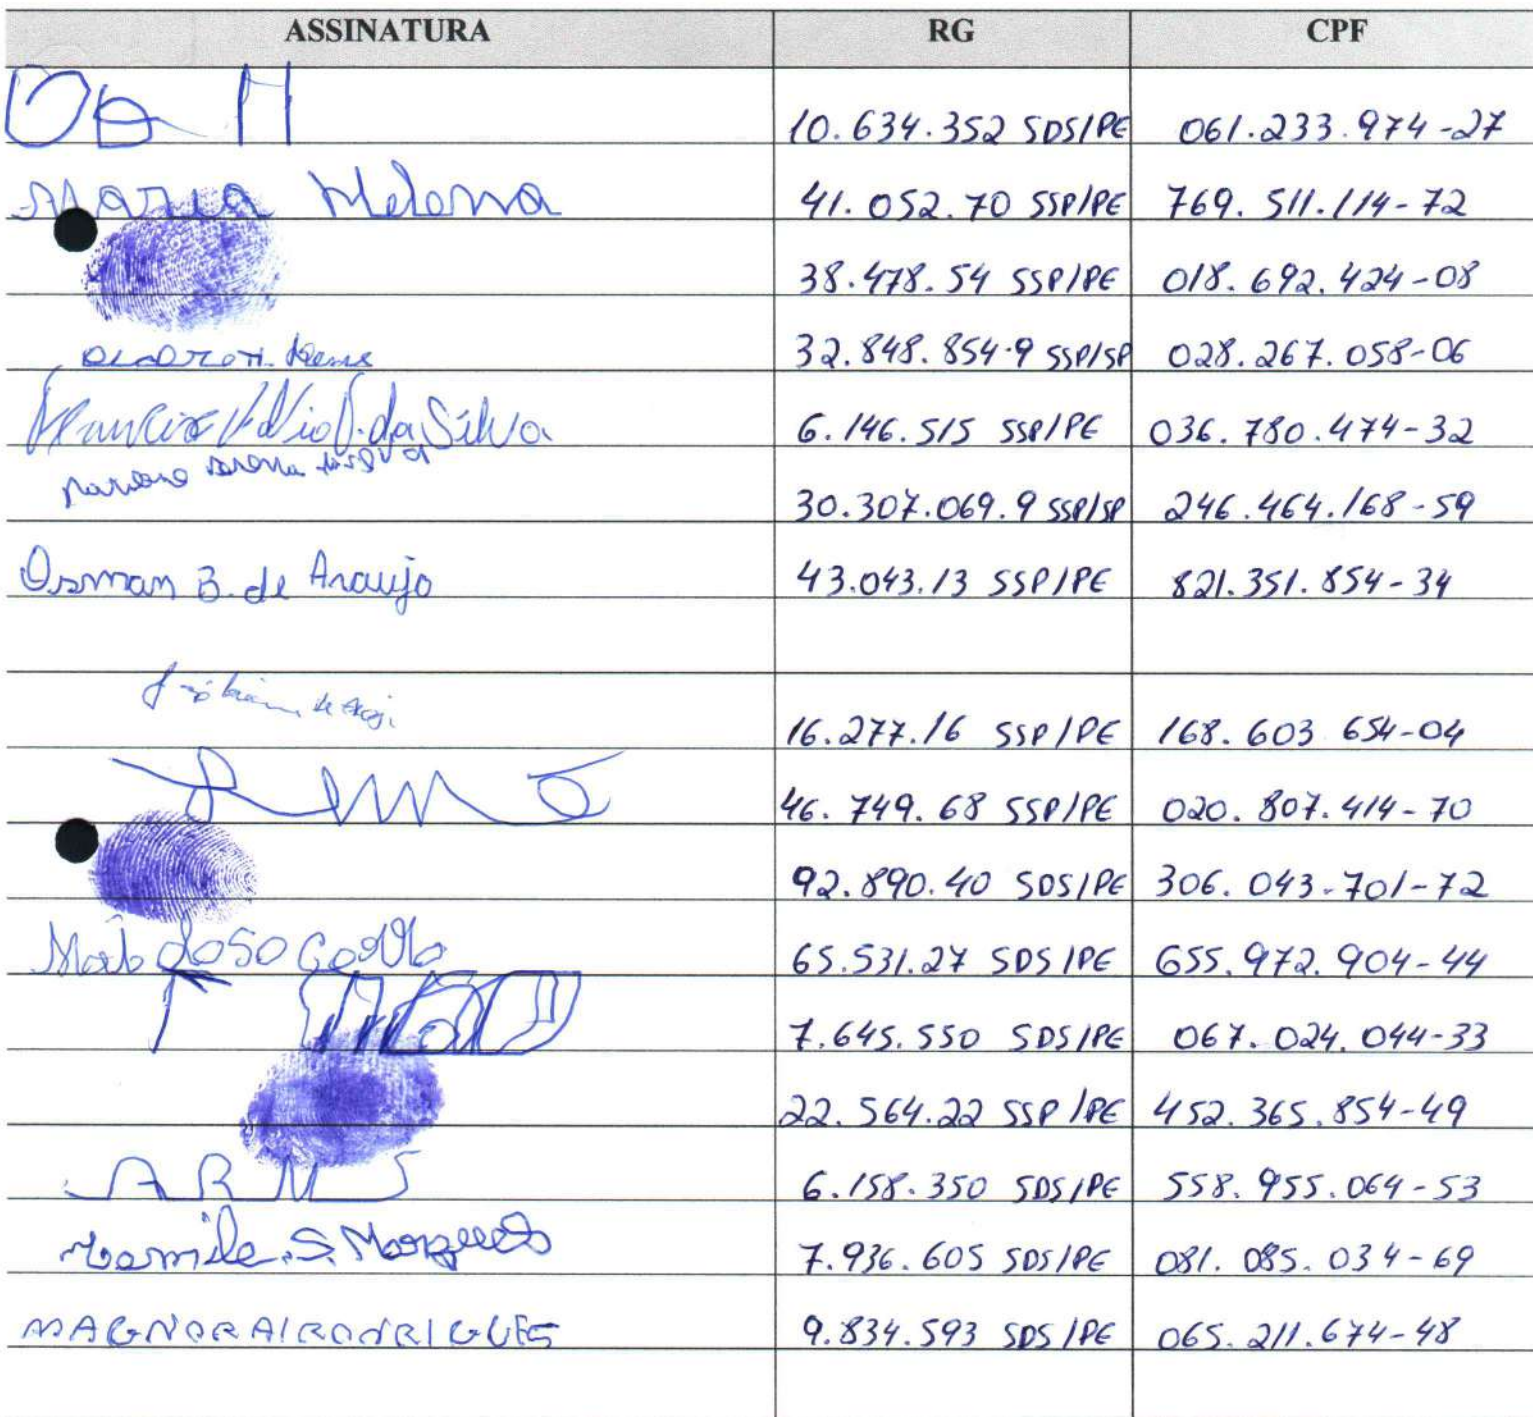 ASSINATURA RG CPF
10.634.352 SDS/PE 061.233.974-27
Maria Helena 41.052.70 SSP/PE 769.511.114-72
38.478.54 SSP/PE 018.692.424-08
32.848.854-9 SSP/SP 028.267.058-06
da Silva 6.146.515 SSP/PE 036.780.474-32
30.307.069.9 SSP/SP 246.464.168-59
Osman B. de Araujo 43.043.13 SSP/PE 821.351.854-34
16.277.16 SSP/PE 168.603 654-04
46.749.68 SSP/PE 020.807.414-70
92.890.40 SDS/PE 306.043.701-72
65.531.27 SDS/PE 655.972.904-44
7.645.550 SDS/PE 067.024.044-33
22.564.22 SSP/PE 452.365.854-49
A R M S 6.158.350 SDS/PE 558.955.064-53
S. 7.936.605 SDS/PE 081.085.034-69
9.834.593 SDS/PE 065.211.674-48